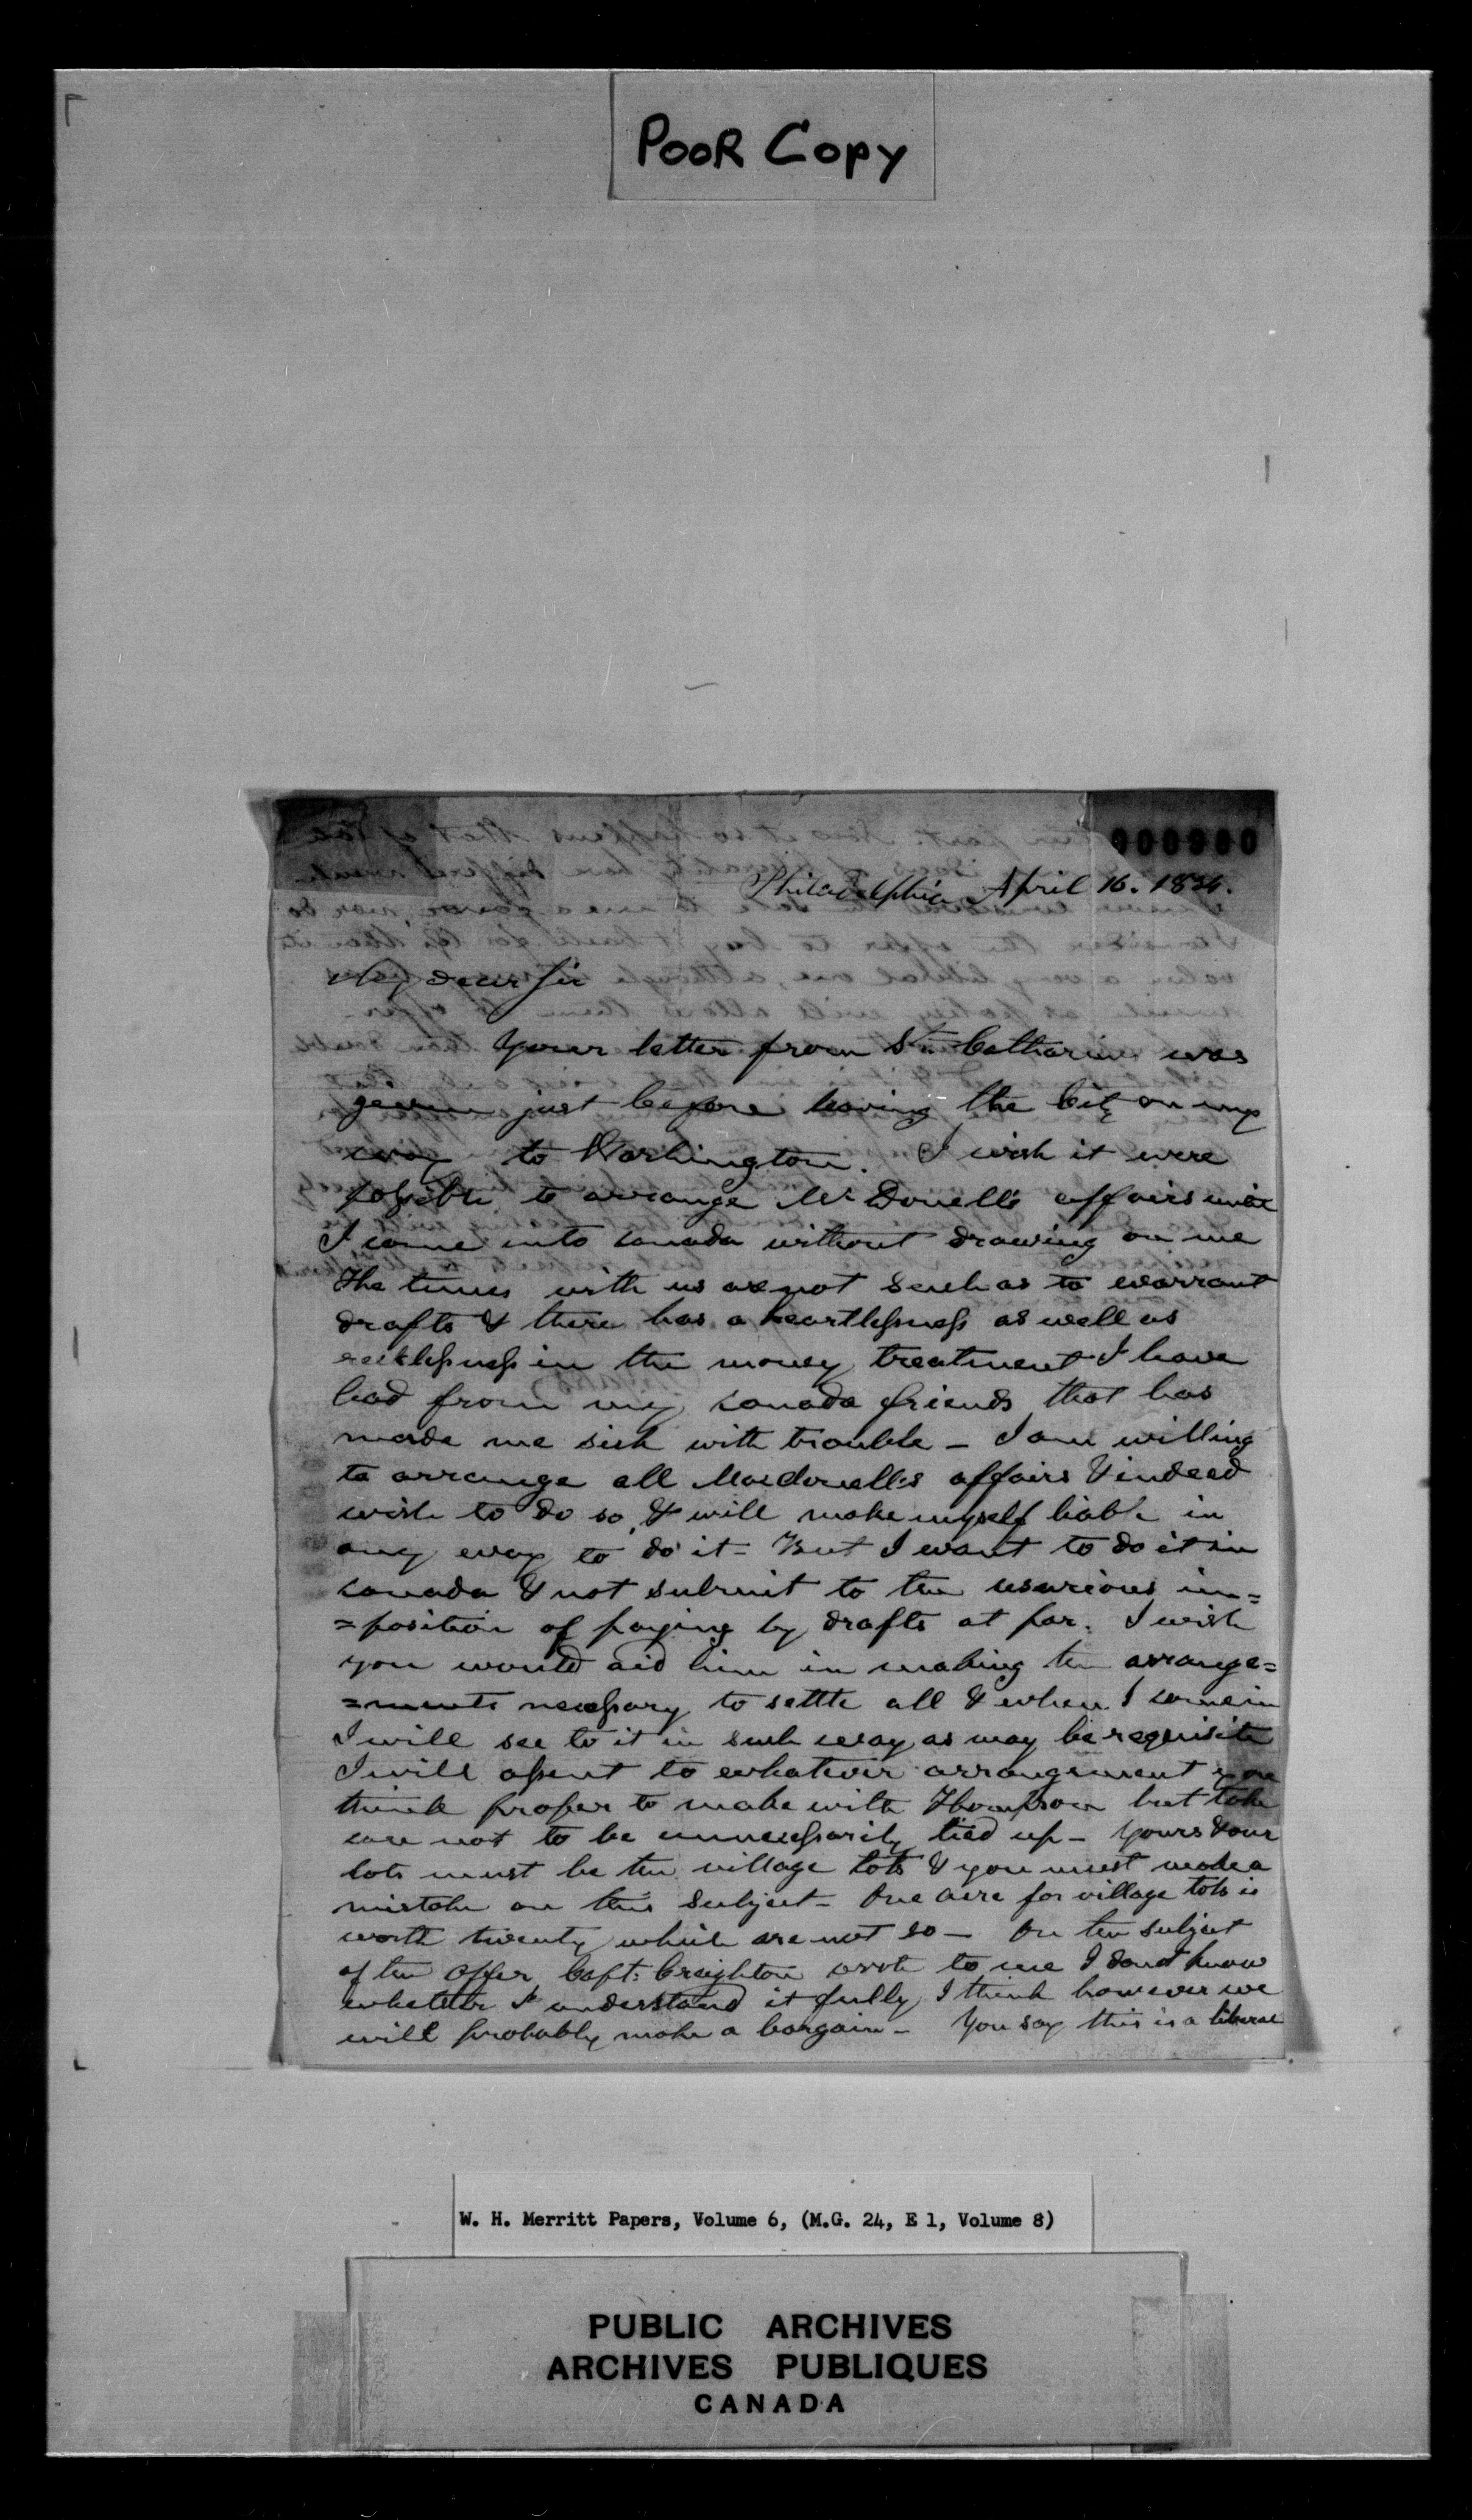 POOR COPY
000900
Philadelphia April 16. 1834.
My dear Sir
Your letter from St. Catharines was
just before leaving the City on my
way to Washington. I wish it were
possible to arrange McDonell's affairs until
I come into Canada without drawing on me
The times with us are not such as to warrant
drafts & there has a heartlessness as well as
recklessness in the money treatment I have
had from my Canada friends that has
made me sick with trouble - I am willing
to arrange all Macdonell's affairs & indeed
wish to do so, & will make myself liable in
any way to do it - But I want to do it in
Canada & not submit to the usurious im=
=position of paying by drafts at par. I wish
you would aid him in making the arrange=
=ments necessary to settle all & when I come in
I will see to it in such way as may be requisite
I will assent to whatever arrangement you
think proper to make with Thompson but take
care not to be unnecessarily tied up - Yours & our
lots must be the village lots & you must make a
mistake on this subject - One acre for village lots is
worth twenty which are not so - On the subject
of the offer Capt: Creighton wrote to me I dont know
whether I understand it fully, I think however we
will probably make a bargain - You say this is a liberal
W. H. Merritt Papers, Volume 6, (M.G. 24, E 1, Volume 8)
PUBLIC ARCHIVES
ARCHIVES PUBLIQUES
CANADA